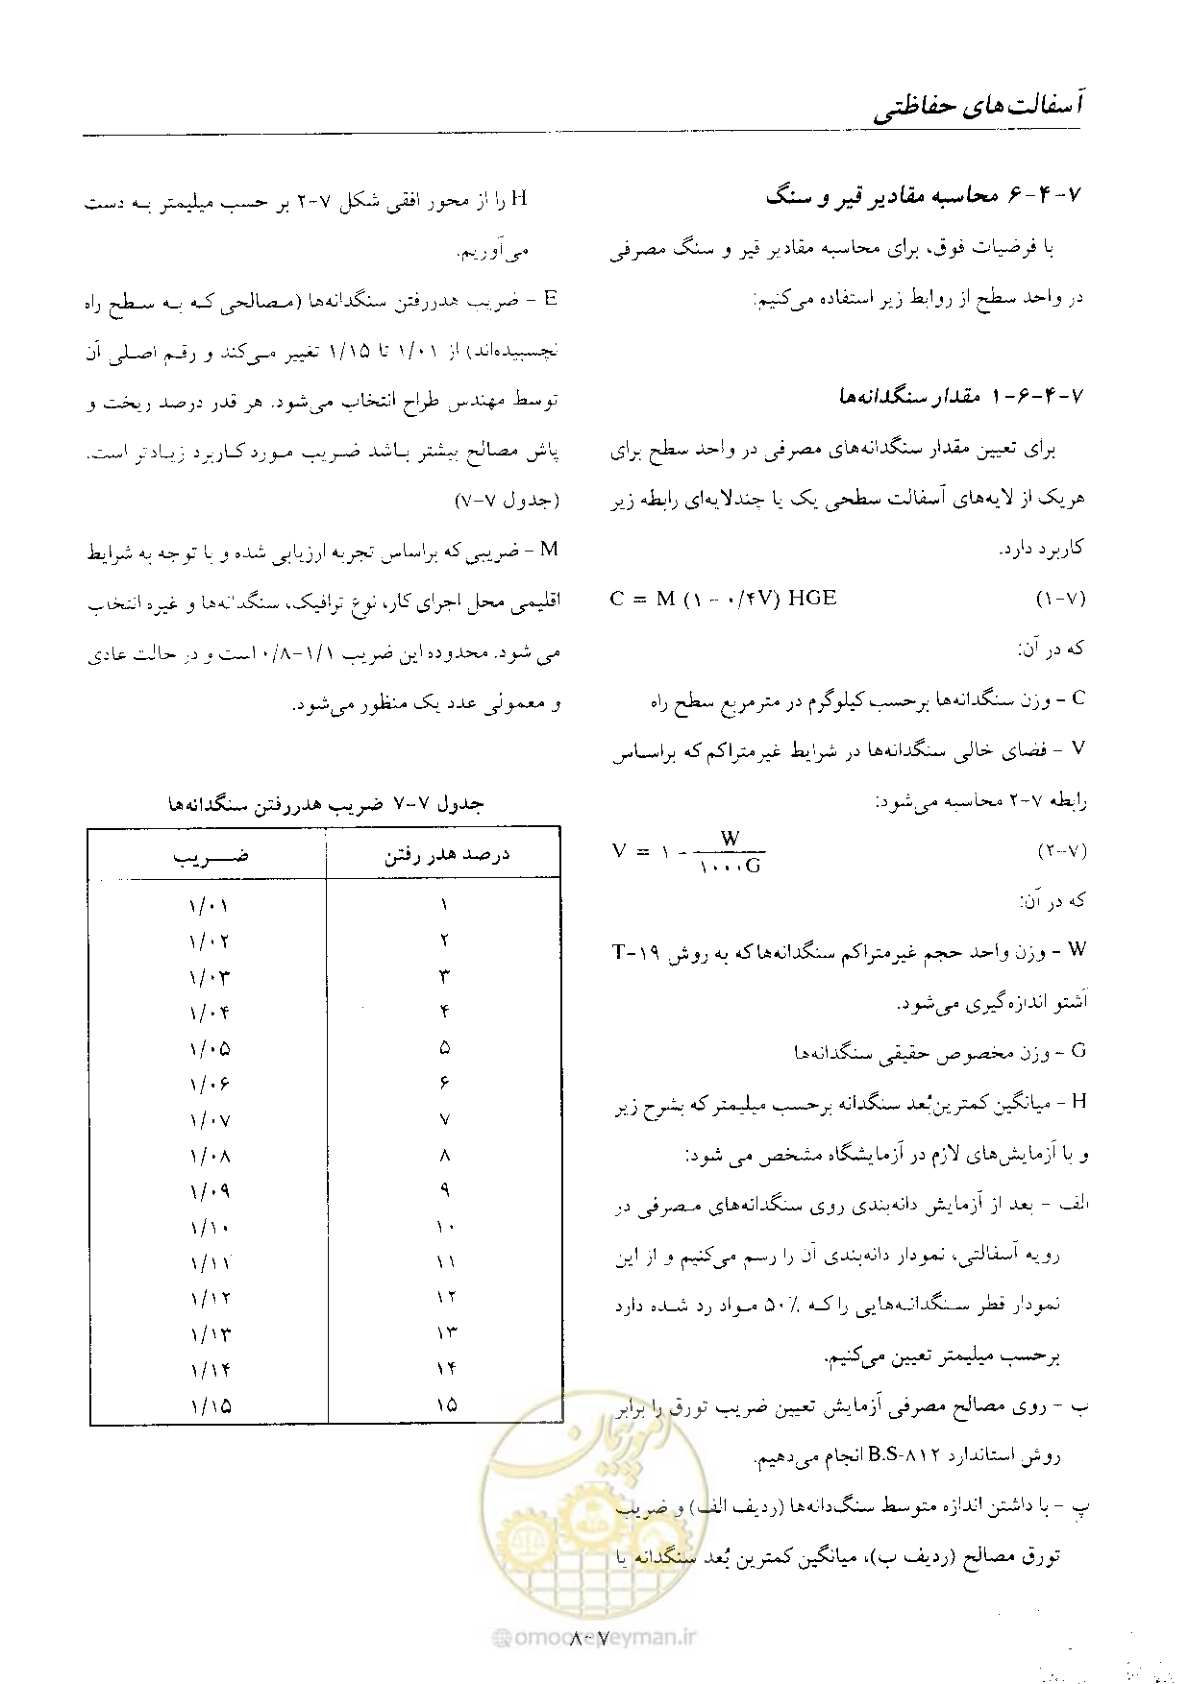 آسفالت‌های حفاظتی
۷-۴-۶ محاسبه مقادیر قیر و سنگ
با فرضیات فوق، برای محاسبه مقادیر قیر و سنگ مصرفی
در واحد سطح از روابط زیر استفاده می‌کنیم:
۷-۴-۶-۱ مقدار سنگدانه‌ها
برای تعیین مقدار سنگدانه‌های مصرفی در واحد سطح برای
هریک از لایه‌های آسفالت سطحی یک یا چندلایه‌ای رابطه زیر
کاربرد دارد.
(۷-۱) C = M (۱ - ۰/۴V) HGE
که در آن:
C - وزن سنگدانه‌ها برحسب کیلوگرم در مترمربع سطح راه
V - فضای خالی سنگدانه‌ها در شرایط غیرمتراکم که براساس
رابطه ۷-۲ محاسبه می‌شود:
(۷-۲) V = ۱ - W / ۱۰۰۰G
که در آن:
W - وزن واحد حجم غیرمتراکم سنگدانه‌ها که به روش T-۱۹
آشتو اندازه‌گیری می‌شود.
G - وزن مخصوص حقیقی سنگدانه‌ها
H - میانگین کمترین بُعد سنگدانه برحسب میلیمتر که بشرح زیر
و با آزمایش‌های لازم در آزمایشگاه مشخص می شود:
الف - بعد از آزمایش دانه‌بندی روی سنگدانه‌های مصرفی در
رویه آسفالتی، نمودار دانه‌بندی آن را رسم می‌کنیم و از این
نمودار قطر سنگدانه‌هایی را که ۵۰٪ مواد رد شده دارد
برحسب میلیمتر تعیین می‌کنیم.
ب - روی مصالح مصرفی آزمایش تعیین ضریب تورق را برابر
روش استاندارد B.S-۸۱۲ انجام می‌دهیم.
پ - با داشتن اندازه متوسط سنگ‌دانه‌ها (ردیف الف) و ضریب
تورق مصالح (ردیف ب)، میانگین کمترین بُعد سنگدانه یا
H را از محور افقی شکل ۷-۲ بر حسب میلیمتر به دست
می‌آوریم.
E - ضریب هدررفتن سنگدانه‌ها (مصالحی که به سطح راه
نچسبیده‌اند) از ۱/۰۱ تا ۱/۱۵ تغییر می‌کند و رقم اصلی آن
توسط مهندس طراح انتخاب می‌شود. هر قدر درصد ریخت و
پاش مصالح بیشتر باشد ضریب مورد کاربرد زیادتر است.
(جدول ۷-۷)
M - ضریبی که براساس تجربه ارزیابی شده و با توجه به شرایط
اقلیمی محل اجرای کار، نوع ترافیک، سنگدانه‌ها و غیره انتخاب
می شود. محدوده این ضریب ۱/۱-۰/۸ است و در حالت عادی
و معمولی عدد یک منظور می‌شود.
جدول ۷-۷ ضریب هدررفتن سنگدانه‌ها
درصد هدر رفتن ضـــریب
۱ ۱/۰۱
۲ ۱/۰۲
۳ ۱/۰۳
۴ ۱/۰۴
۵ ۱/۰۵
۶ ۱/۰۶
۷ ۱/۰۷
۸ ۱/۰۸
۹ ۱/۰۹
۱۰ ۱/۱۰
۱۱ ۱/۱۱
۱۲ ۱/۱۲
۱۳ ۱/۱۳
۱۴ ۱/۱۴
۱۵ ۱/۱۵
امور پیمان
۷-۸
@omoorepeyman.ir